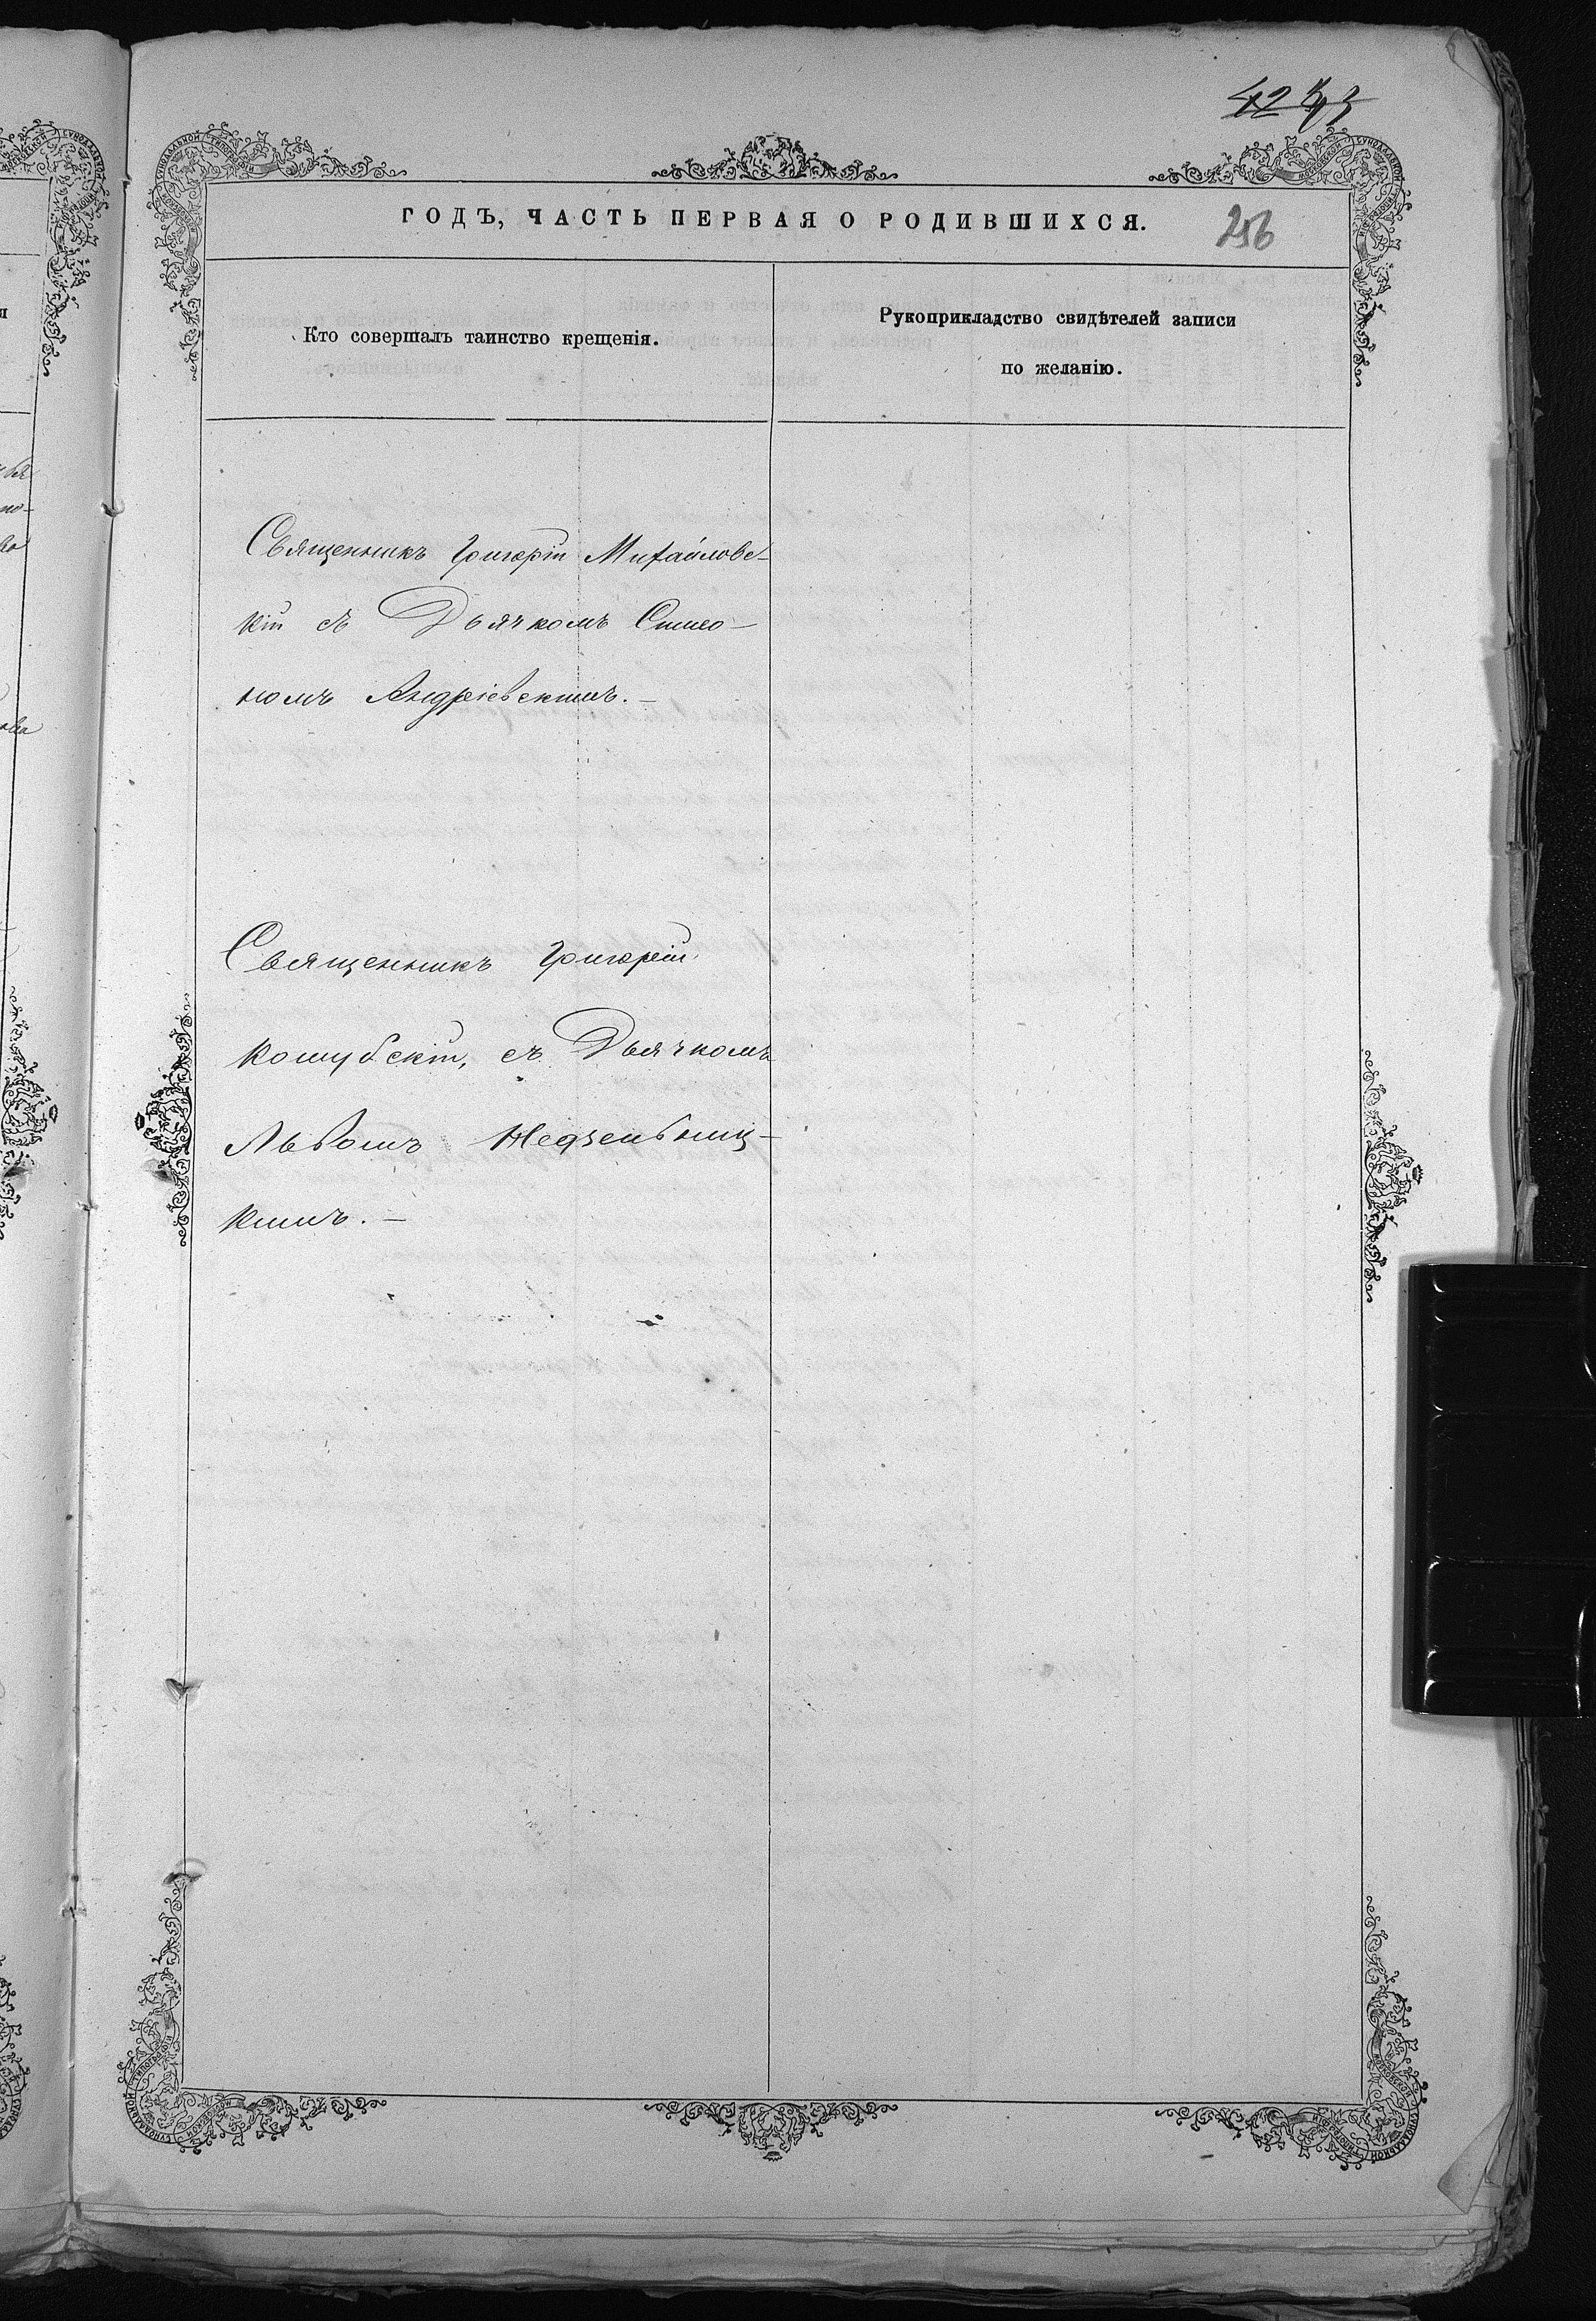 256
ГОДЪ, ЧАСТЬ ПЕРВАЯ О РОДИВШИХСЯ.
Кто совершалъ таинство крещенія.
Рукоприкладство свидѣтелей записи
по желанію.
Священникъ Григорій Михайловс-
кій съ Дьячкомъ Симео-
номъ Андріевскимъ.—
Священникъ Григорій
Кошубскій, съ Дьячкомъ
Львомъ Недзельниц-
кимъ.—